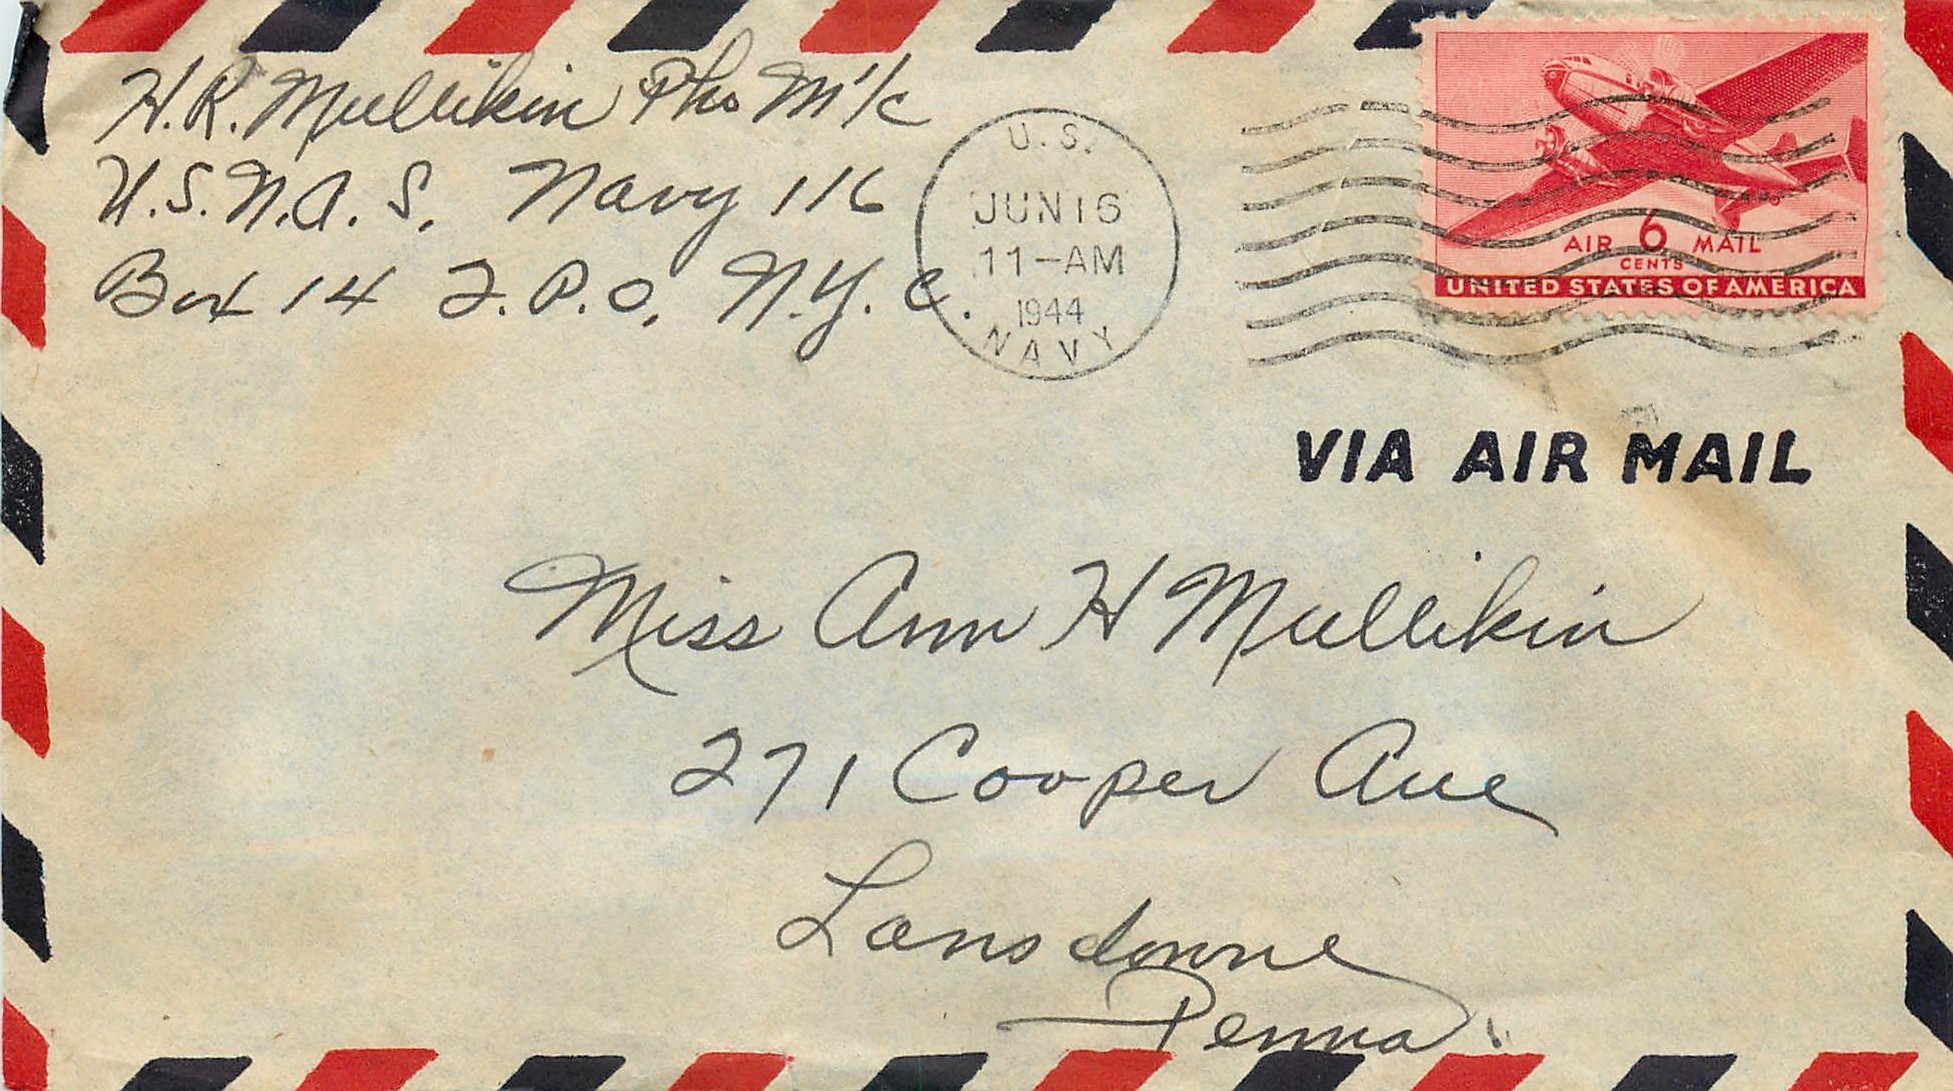 H.R. Mullikin Pho M 1/c
U.S.N.A.S. Navy 116
Box 14 F.P.O. N.Y.C.
U.S.
JUN 16
11-AM
1944
NAVY
AIR 6 MAIL
CENTS
UNITED STATES OF AMERICA
VIA AIR MAIL
Miss Ann H Mullikin
271 Cooper Ave
Lansdowne
Penna